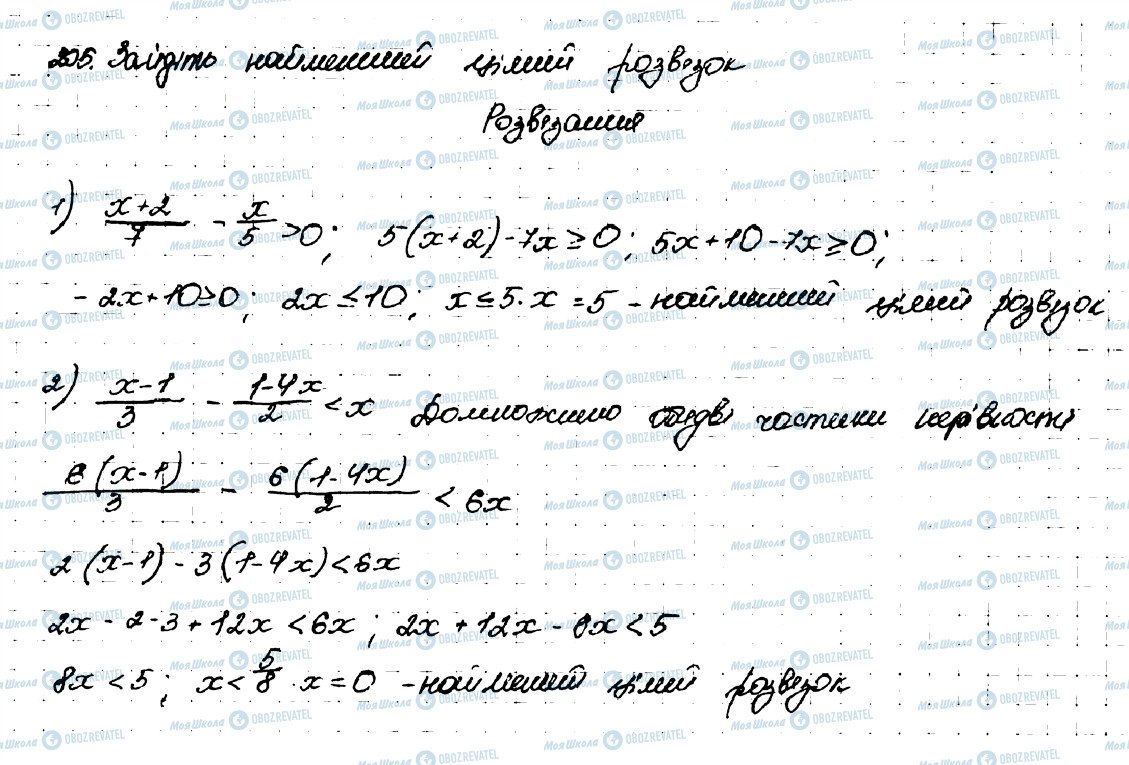 205. Знайдіть найменший цілий розвезок
Розвезання
1) (x+2)/7 - x/5 > 0; 5(x+2)-7x ≥ 0; 5x+10-7x ≥ 0;
-2x+10 ≥ 0; 2x ≤ 10; x ≤ 5. x = 5 - найменший цілий розвезок
2) (x-1)/3 - (1-4x)/2 < x Домножимо обидві частини нерівності
6(x-1)/3 - 6(1-4x)/2 < 6x
2(x-1) - 3(1-4x) < 6x
2x - 2 - 3 + 12x < 6x; 2x + 12x - 6x < 5
8x < 5; x < 5/8. x = 0 - найменший цілий розвезок